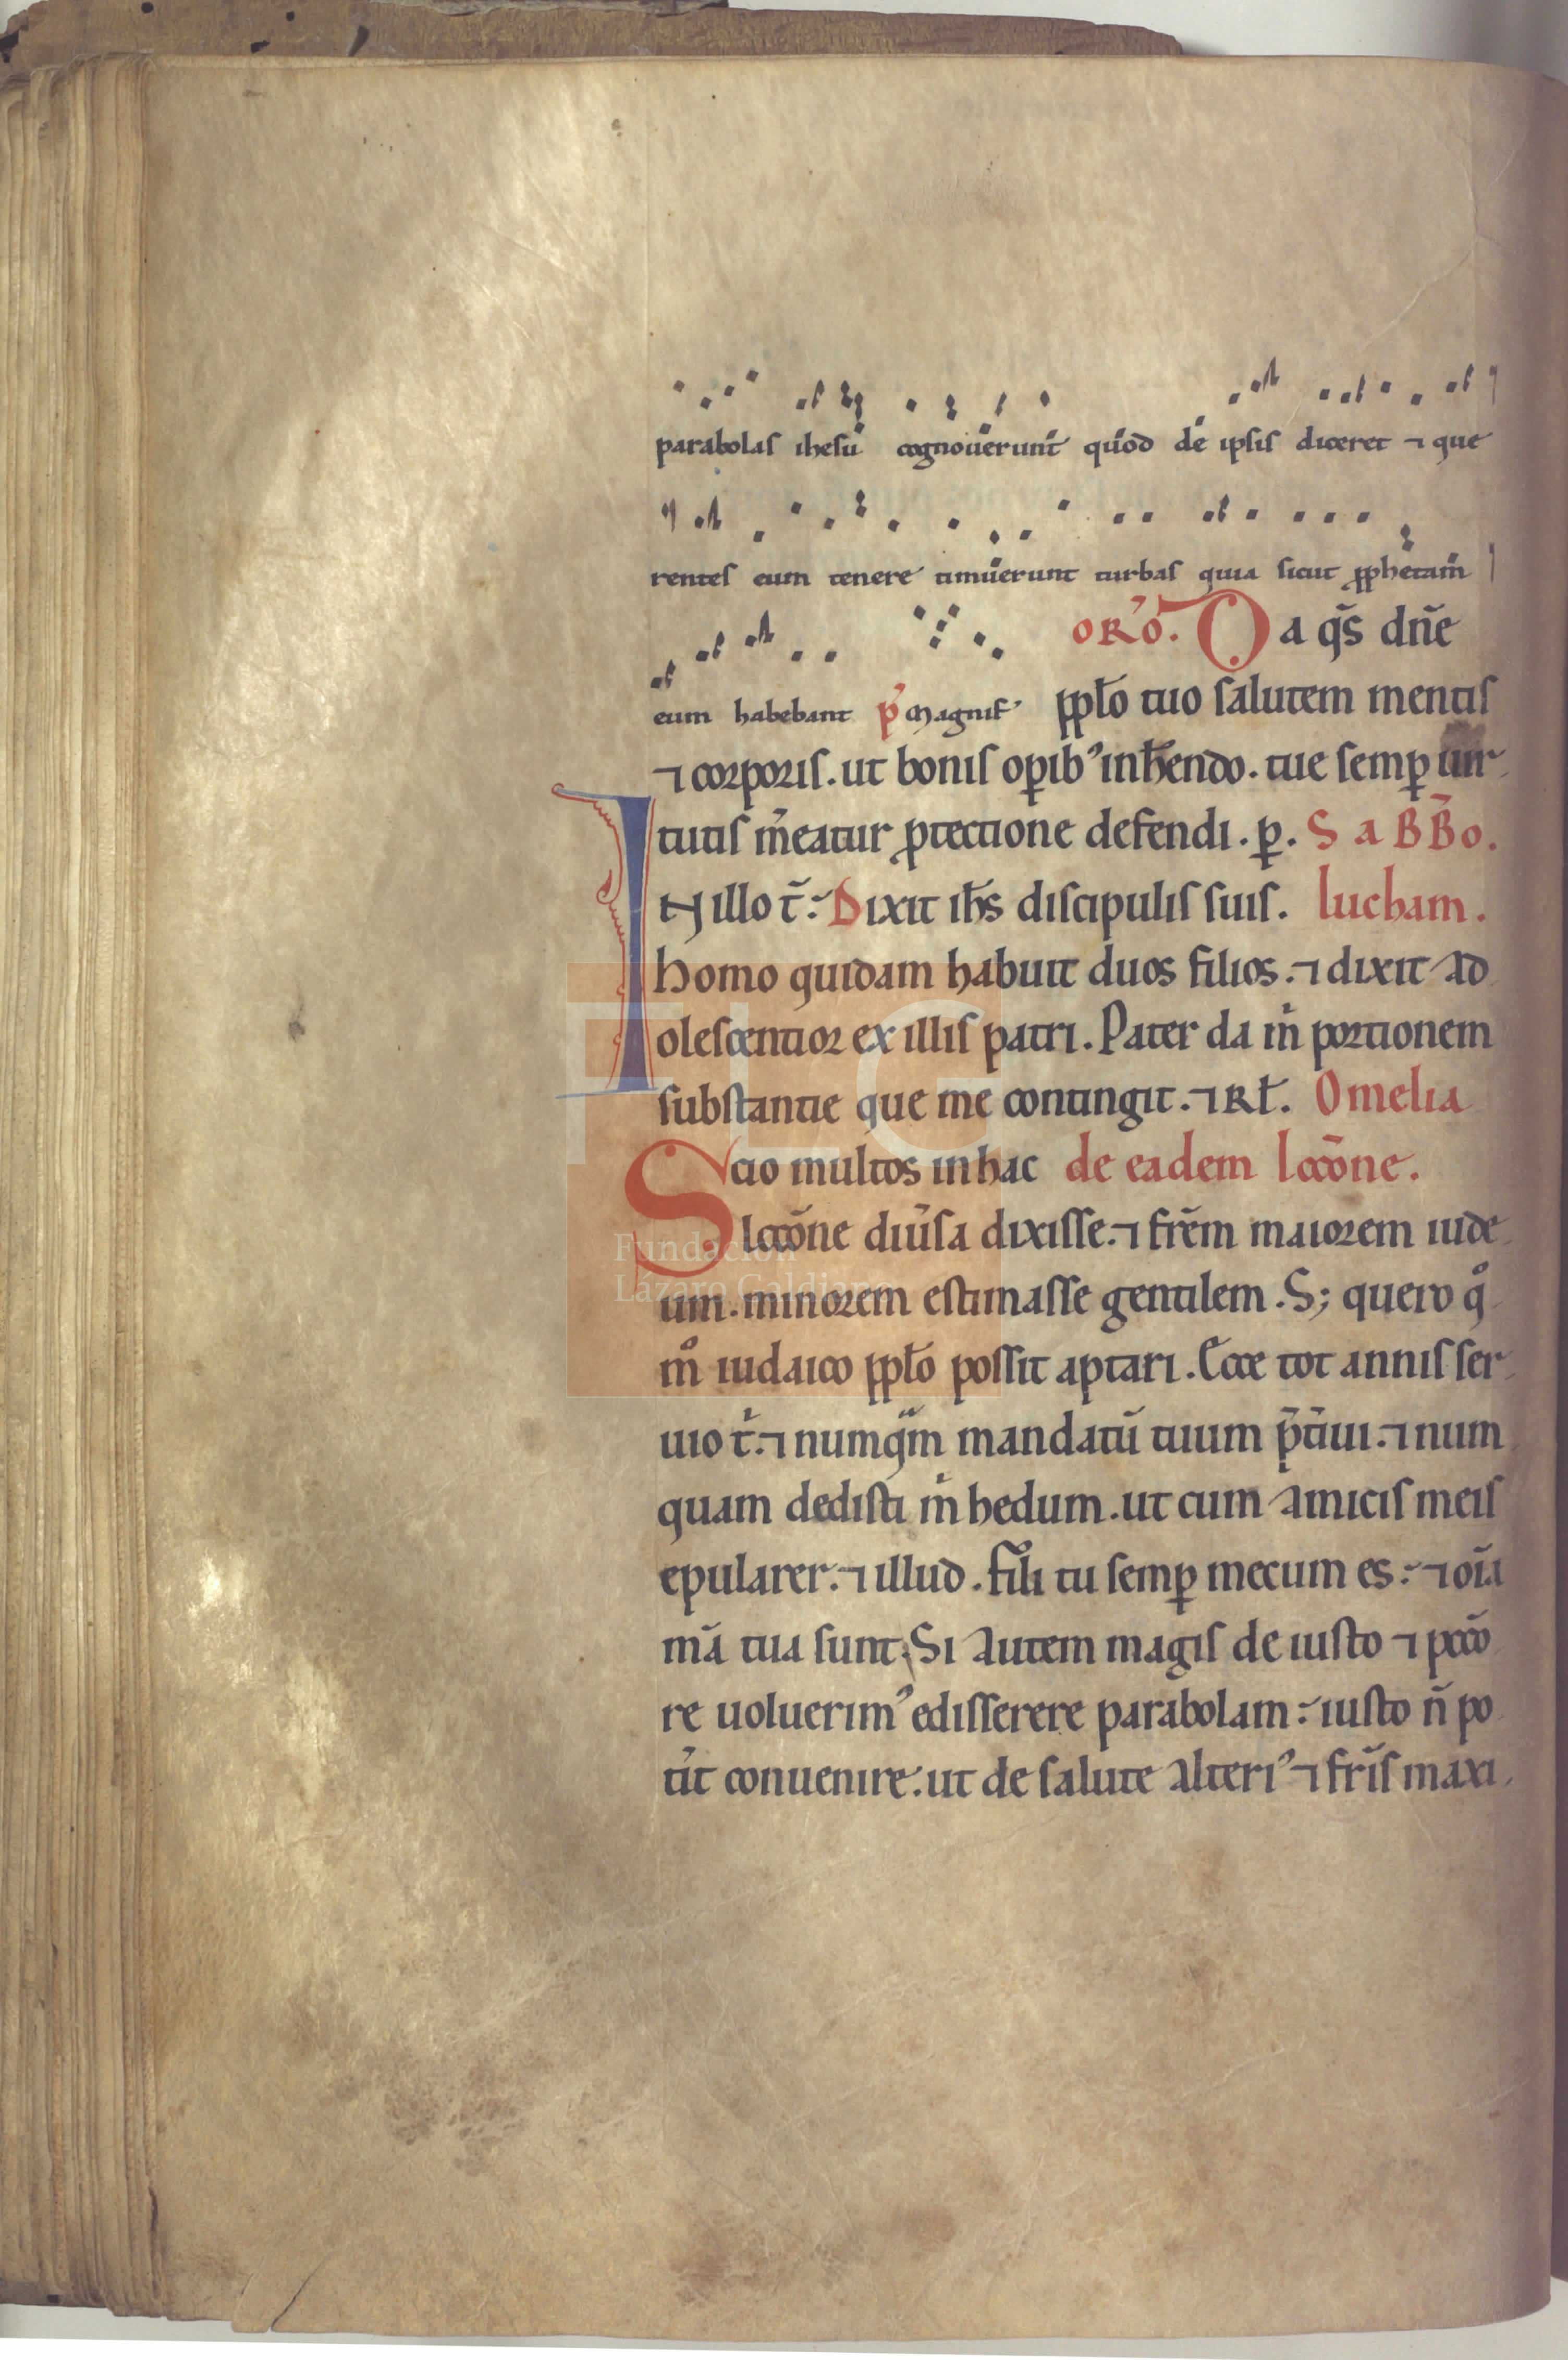 parabolas ihesu cognouerunt quod de ipsis diceret ⁊ que
rentes eum tenere timuerunt turbas quia sicut ꝓphetam
eum habebant p̄ Magnif'
oRō. Da q̄s dn̄e
pp̄lo tuo salutem mentis
⁊ corporis. ut bonis oꝑib' inh̄endo. tue semꝑ uir
tutis m̄eatur ꝓtectione defendi. ꝑ. SaBB̄o.
IN illo t̄. Dixit ih̄s discipulis suis. lucham.
homo quidam habuit duos filios. ⁊ dixit ad
olescentior ex illis patri. Pater da m̄ portionem
substantie que me contingit. ⁊ Rł. Omelia
Scio multos in hac de eadem lcc̄one.
lcc̄one diu̾sa dixisse. ⁊ fr̄em maiorem iude
um. minorem estimasse gentilem. S; quero qͦ
mͦ iudaico pp̄lo possit aptari. Ecce tot annis ser
uio t̄. ⁊ numq̄m mandatū tuum p̄t̄iui. ⁊ num
quam dedisti m̄ hedum. ut cum amicis meis
epularer. ⁊ illud. fili tu semꝑ mecum es. ⁊ oīa
mā tua sunt. Si autem magis de iusto ⁊ pccō
re uoluerim' edisserere parabolam. iusto n̄ po
t̄it conuenire. ut de salute alteri' ⁊ fr̄is maxi
Fundación
Lázaro Galdiano
FLG